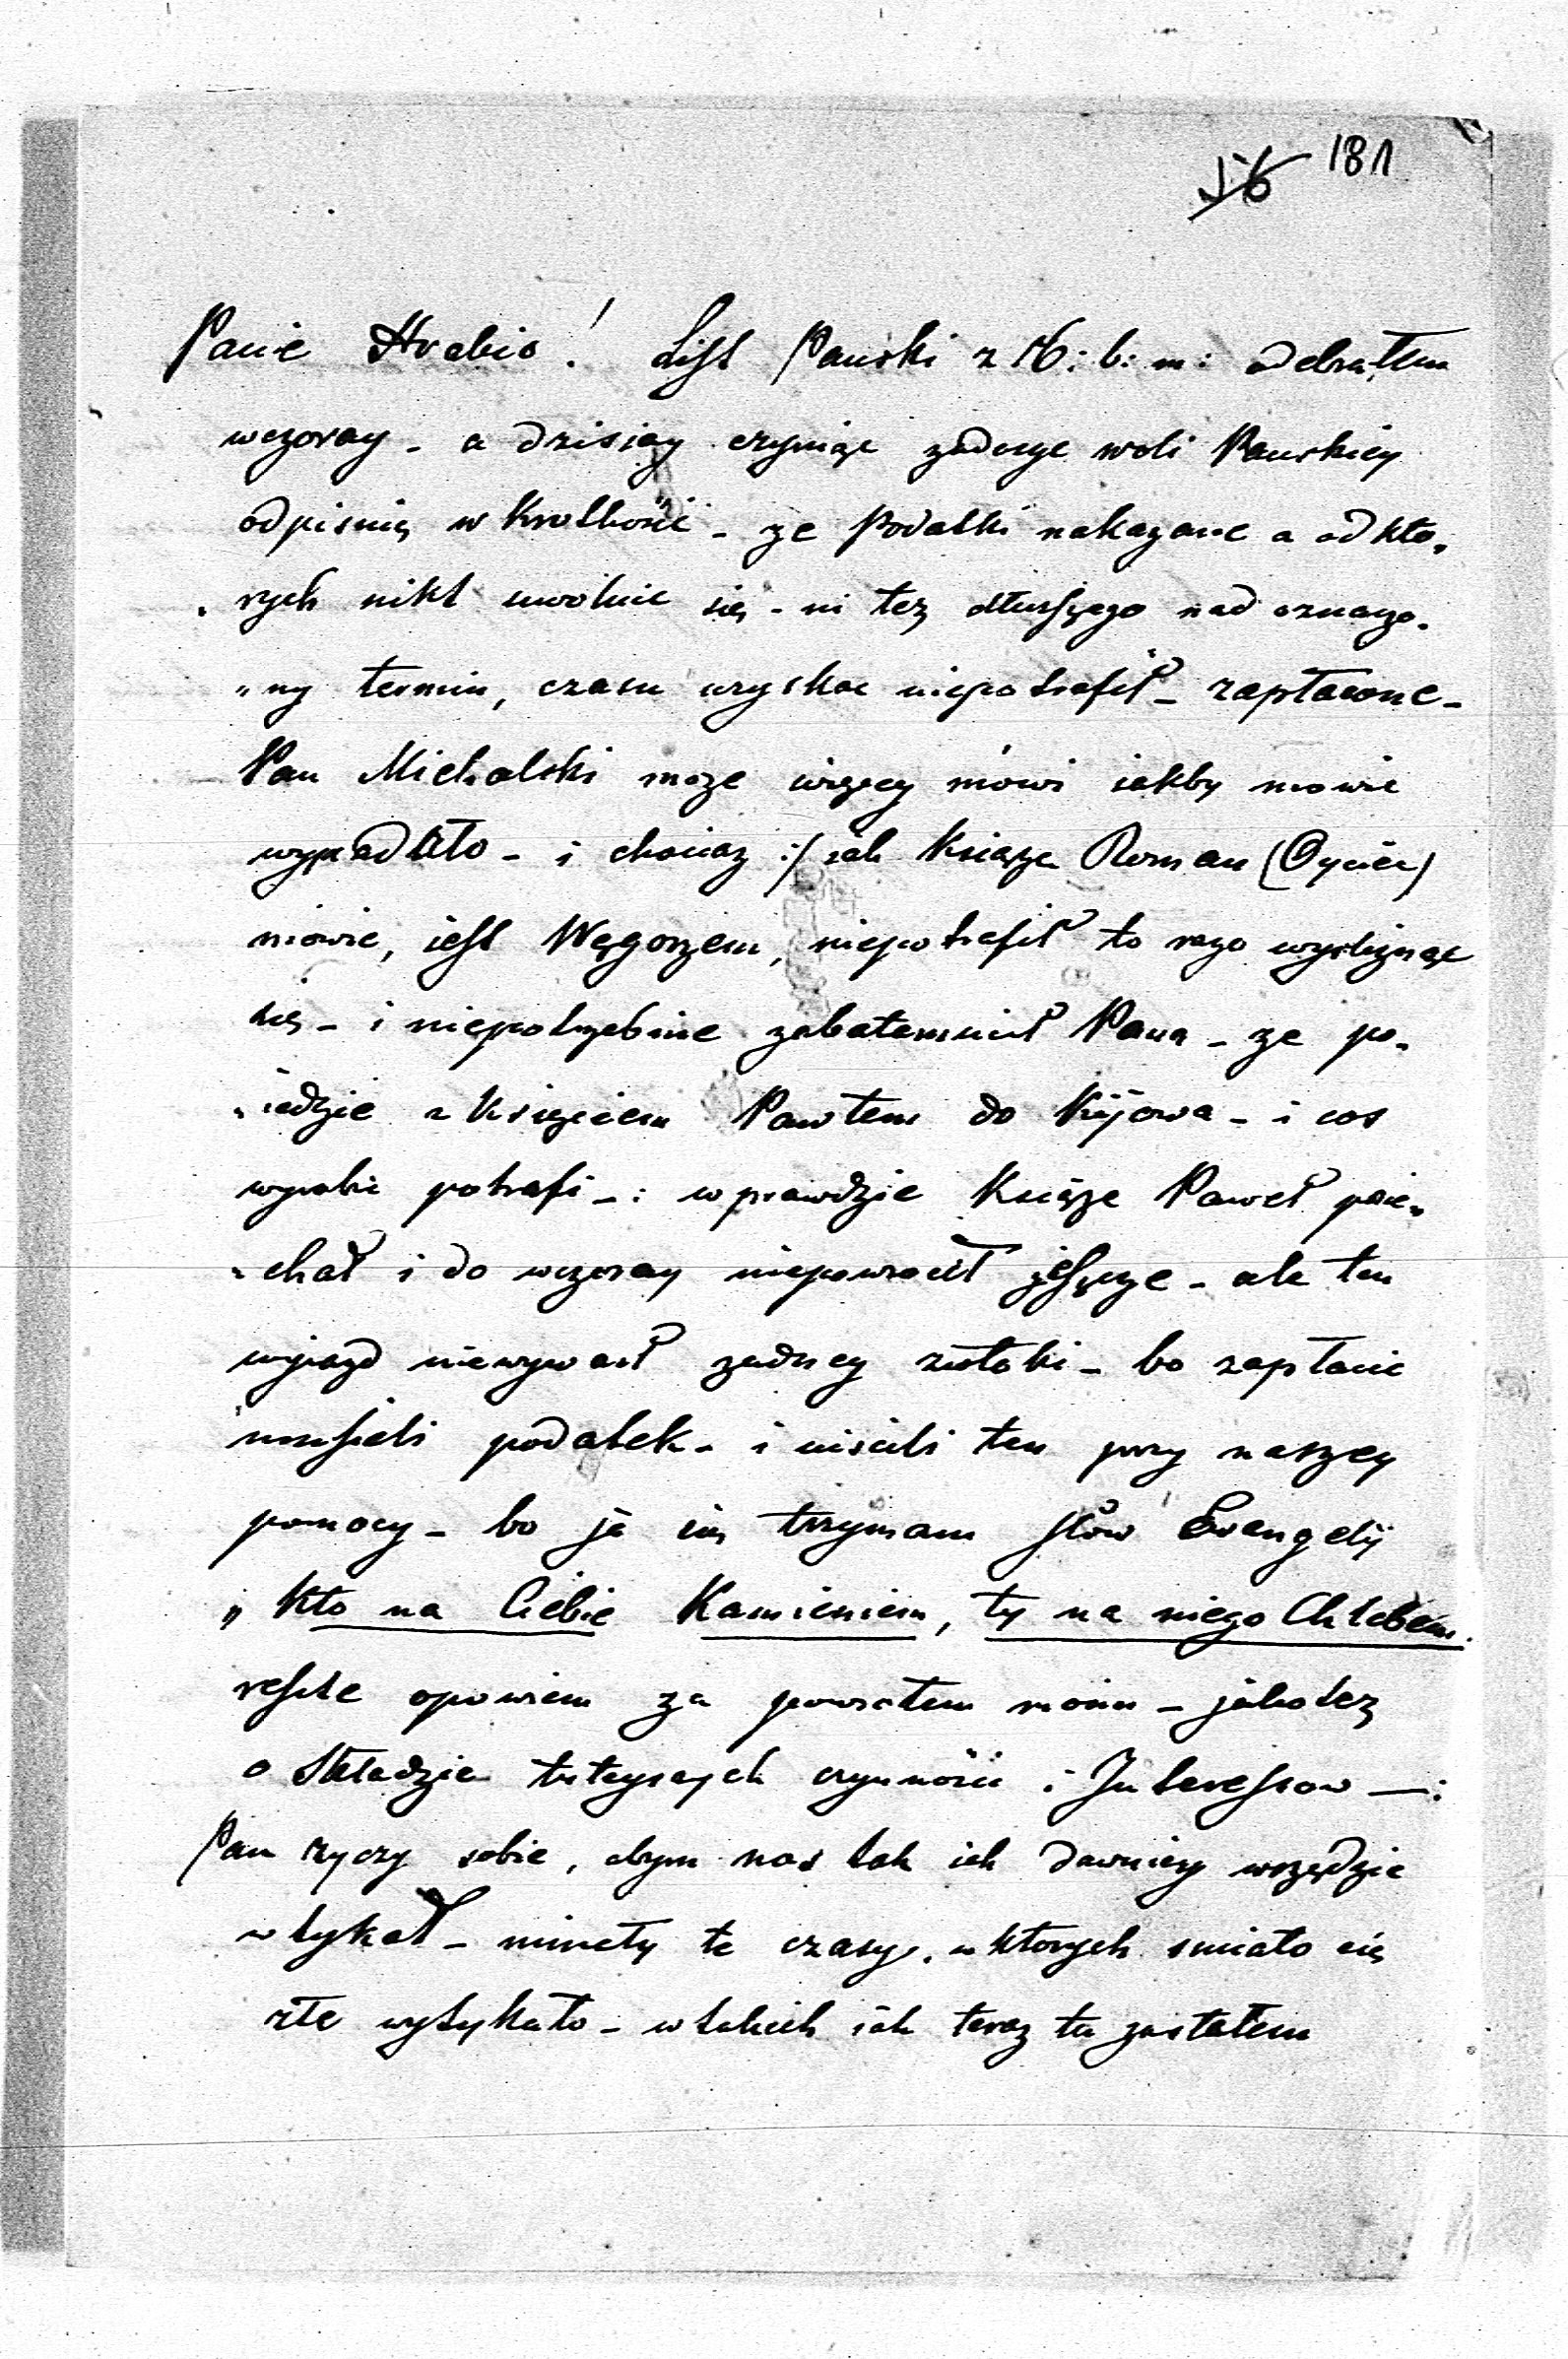 181
Panie Hrabio! List Panski z 16: b: m: odebrałem
wczoray - a dzisiay czyniąc zadosyc woli Panskiey
odpisuię w krotkości - ze Podatki nakazane a od kto„
„rych nikt uwolnic się - ni tez dłuższego nad oznaczo„
„ny termin, czasu uzyskac niepotrafił - zapłacone -
Pan Michalski moze więcey mówi iakby mowic
wypadało - i chociaz :/ iak Książe Roman (Oyciec)
mowie, iest Węgorzem, niepotrafił to razo wyslizgnąc
się - i niepotrzebnie zabałamucił Pana - ze po„
„iedzie z Księciem Pawłem do Kijowa - i cos
wyrobic potrafi - : wprawdzie Książe Paweł poie„
„chał i do wczoray niepowrocił jeszcze - ale ten
wyiazd niewywarł zadney zwłoki - bo zapłacic
musieli podatek - i uiscili ten przy naszey
pomocy - bo ja się trzymam słów Ewangelij
„ Kto na Ciebie Kamieniem, ty na niego Chlebem.
reszte opowiem za powrotem moim - jakotez
o składzie tuteyszych czynności i Interessow —:
Pan zyczy sobie, abym nos tak iak dawniey wszędzie
wtykał - mineły te czasy, w ktorych smiało się
złe wytykało - w takich iak teraz tu zastałem